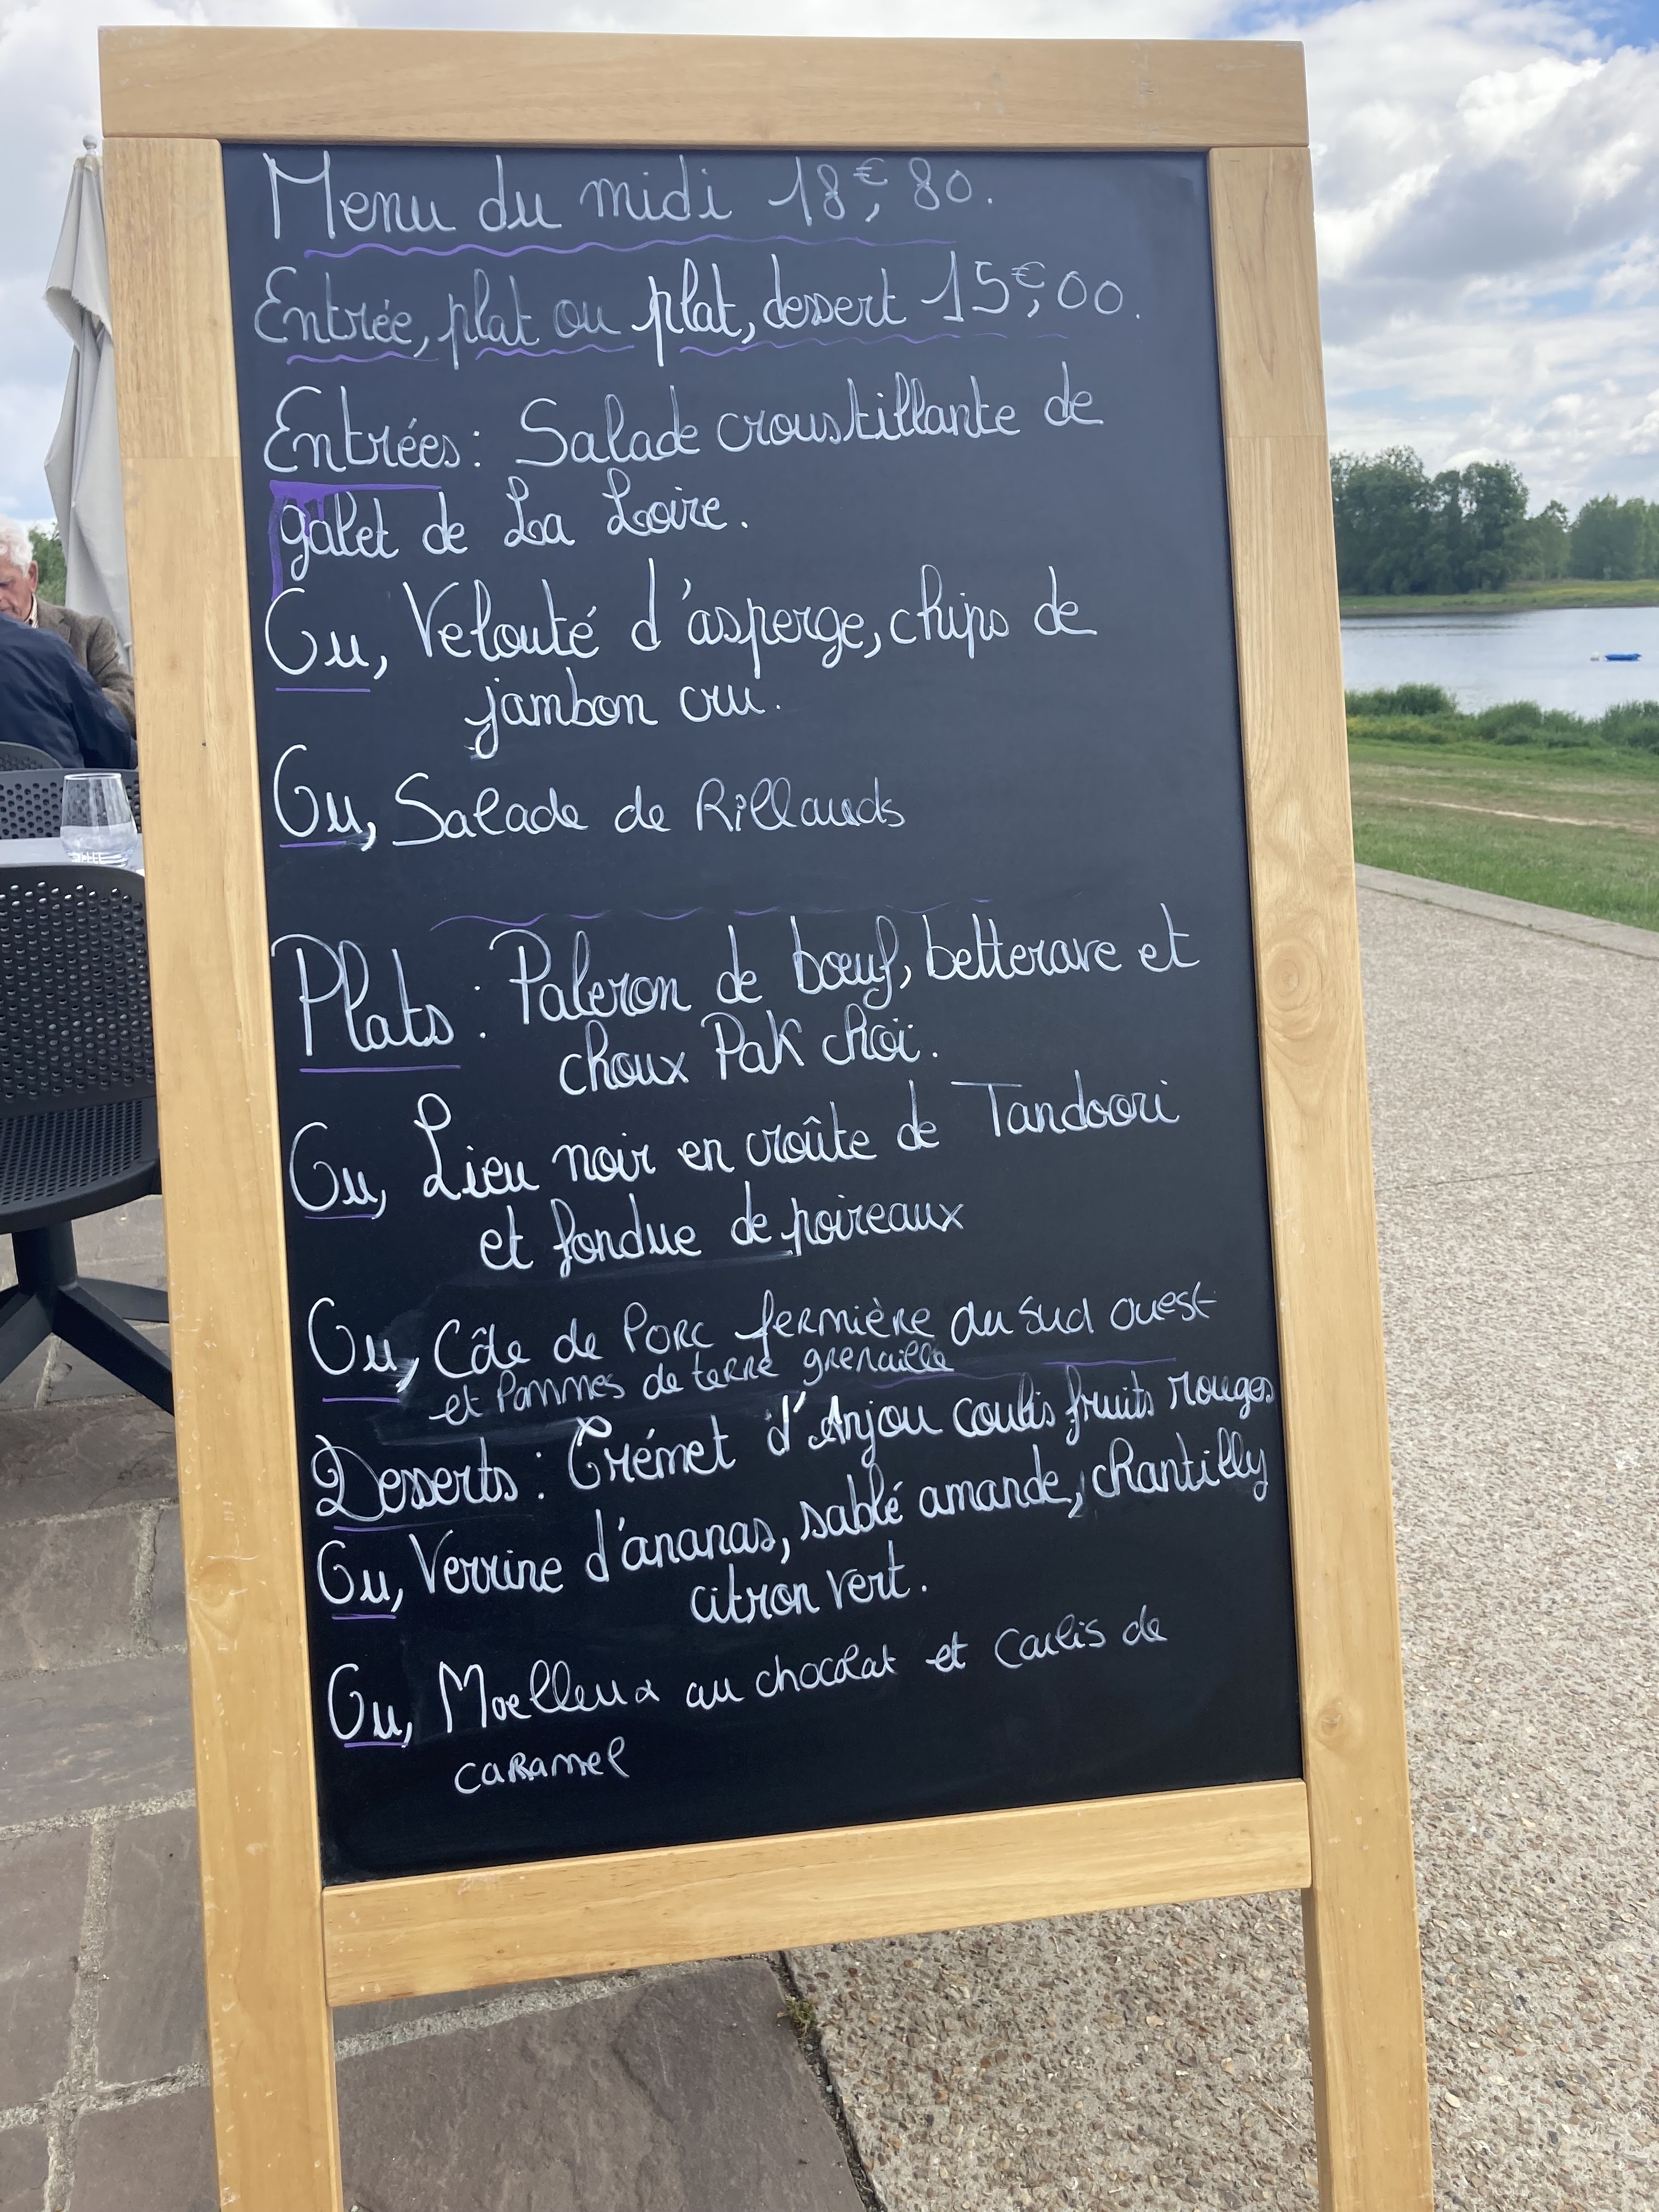 Menu du midi 18€,80.
Entrée, plat ou plat, dessert 15€,00.
Entrées : Salade croustillante de
galet de La Loire.
Ou, Velouté d'asperge, chips de
jambon cru.
Ou, Salade de Rillauds
Plats : Paleron de bœuf, betterave et
choux Pak choï.
Ou, Lieu noir en croûte de Tandoori
et fondue de poireaux
Ou, Côte de Porc fermière du Sud ouest
et Pommes de terre grenaille
Desserts : Crémet d'Anjou coulis fruits rouges
Ou, Verrine d'ananas, sablé amande, chantilly
citron vert.
Ou, Moelleux au chocolat et Coulis de
caramel